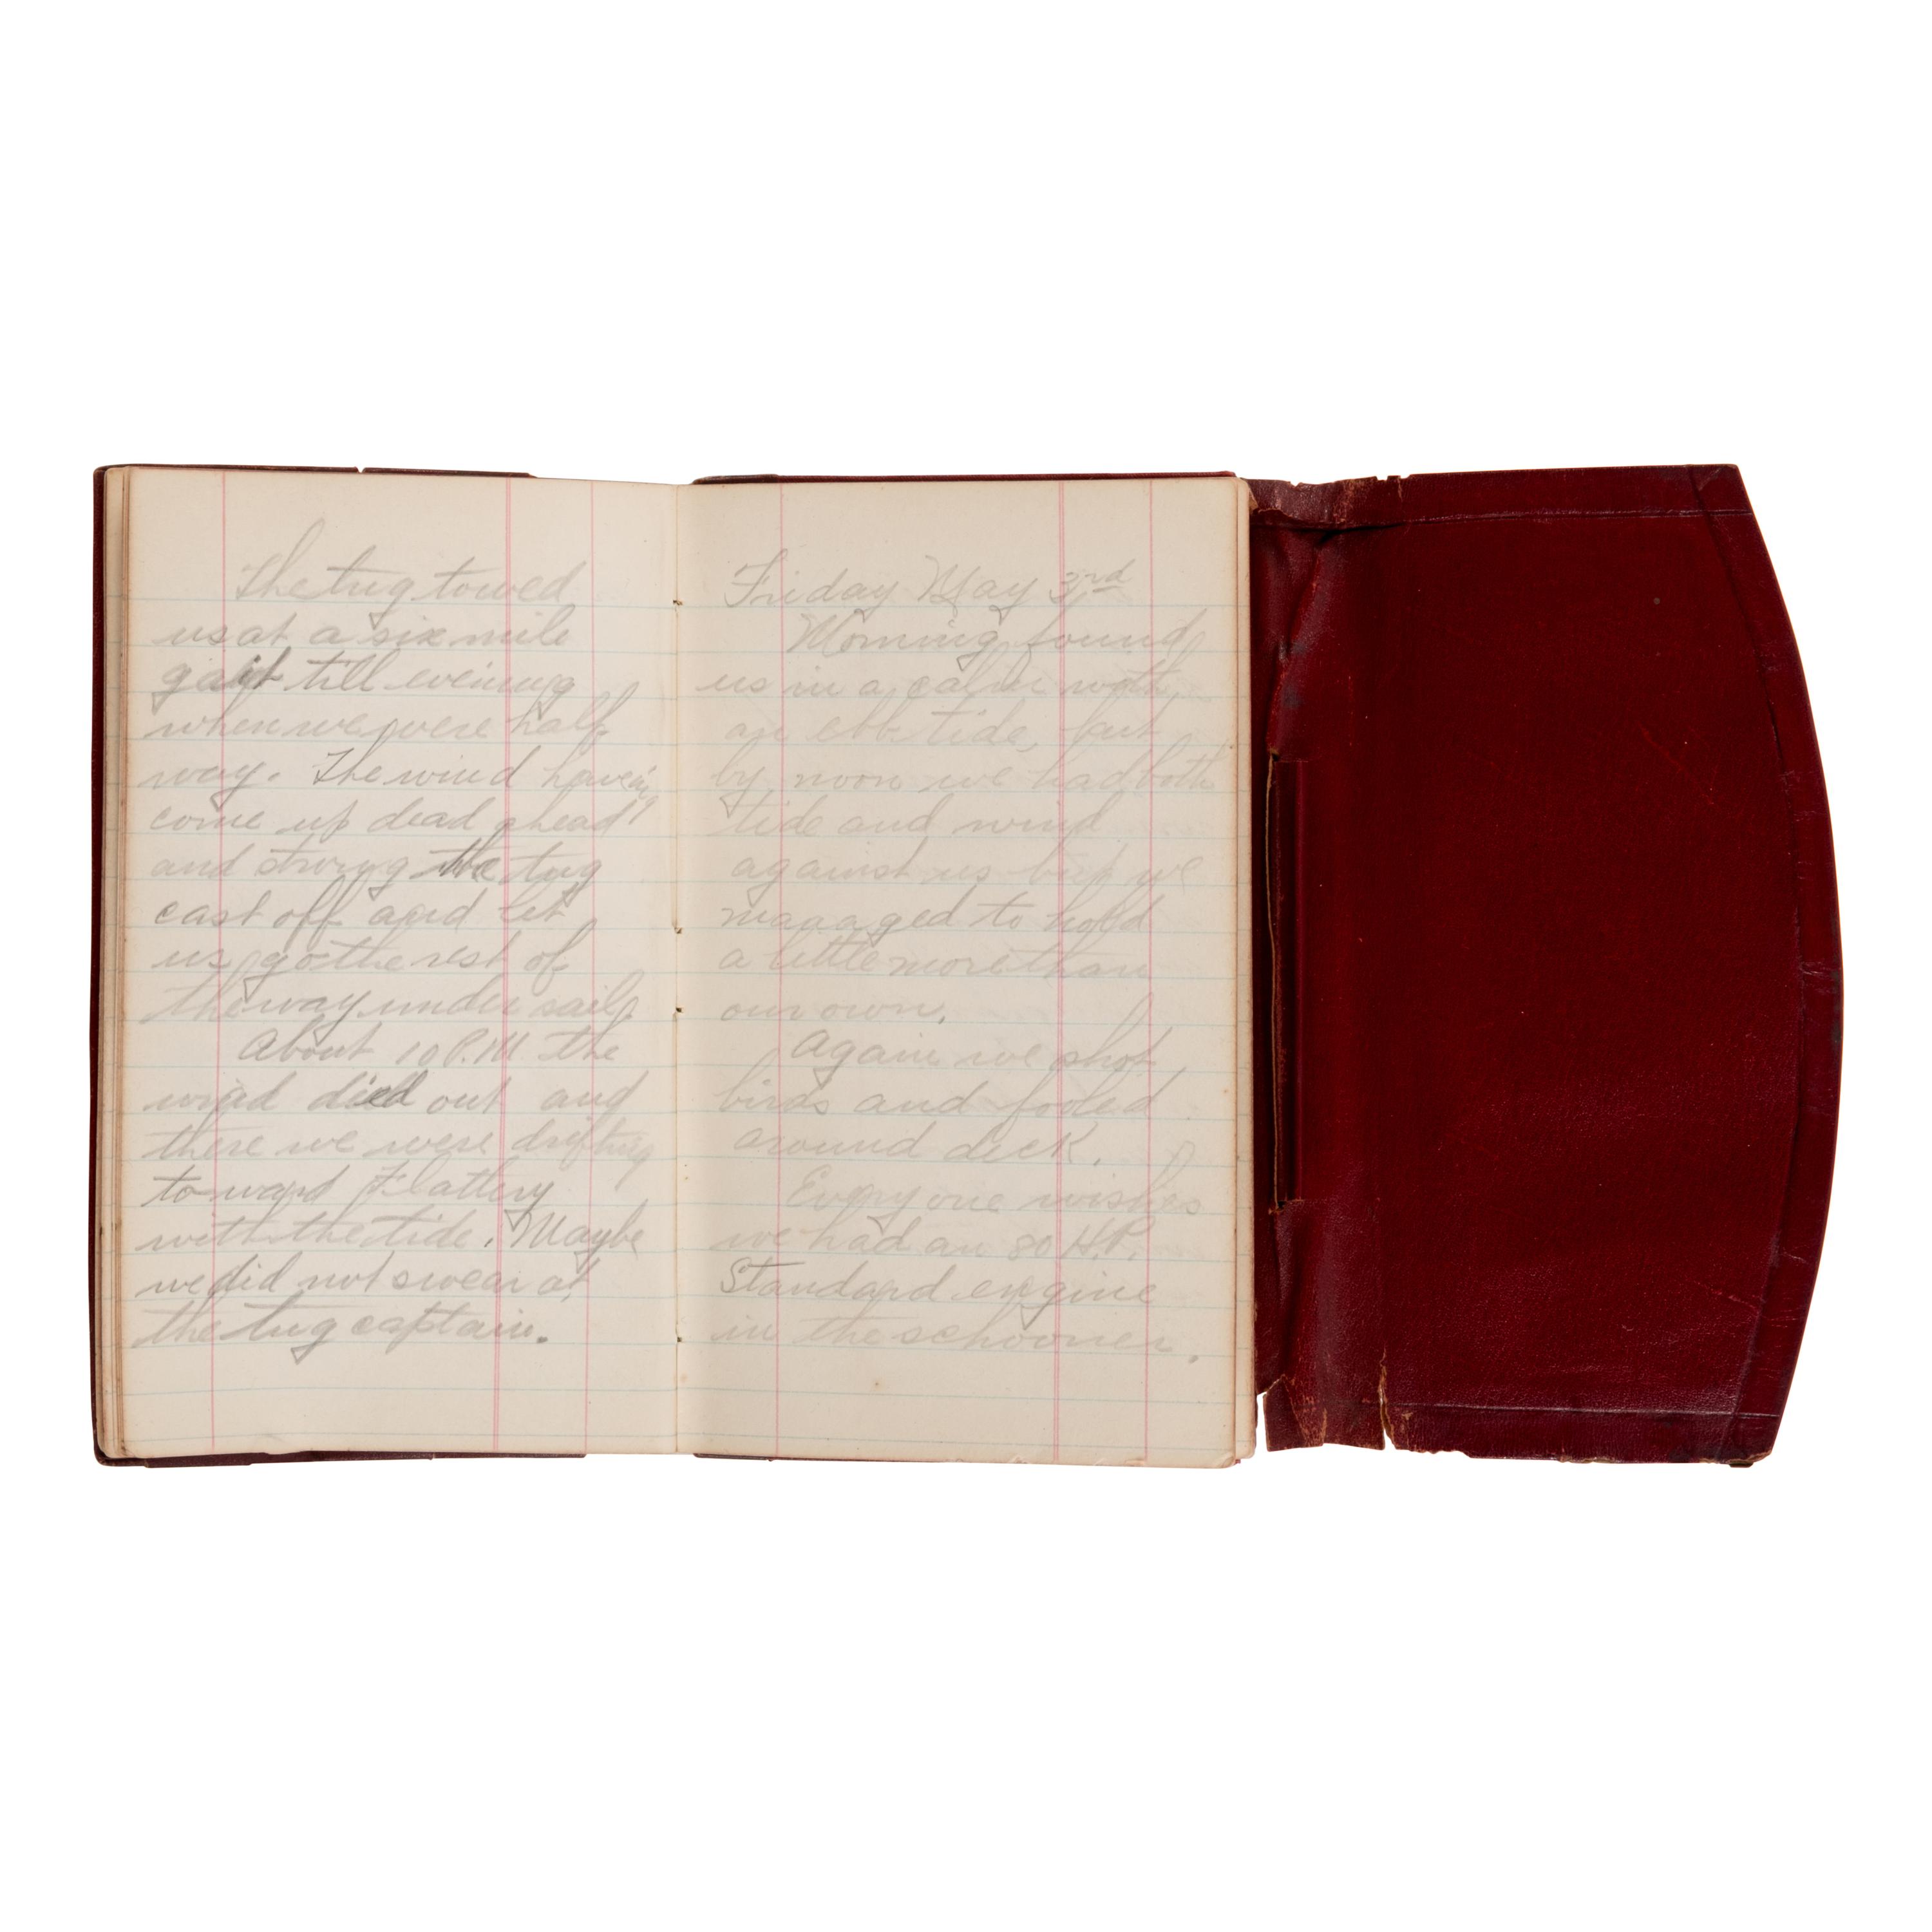 The tug towed
us at a six mile
gait till evening
when we were half
way. The wind haveing
come up dead ahead
and strong the tug
cast off and let
us go the rest of
the way under sail.
About 10 P.M. the
wind died out and
there we were drifting
toward Flattery
with the tide. Maybe
we did not swear at
the tug captain.
Friday May 3rd
Morning found
us in a calm with
an ebb tide, but
by noon we had both
tide and wind
against us but we
managed to hold
a little more than
our own.
Again we shot
birds and fooled
around deck.
Everyone wishes
we had an 80 H.P.
Standard engine
in the schooner.